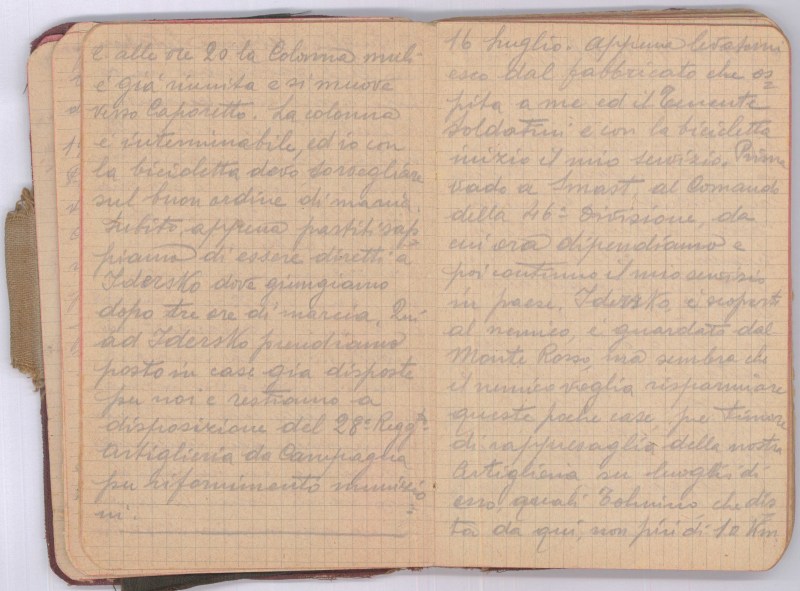 e alle ore 20 la Colonna muli
è già riunita e si muove
verso Caporetto. La colonna
è interminabile, ed io con
la bicicletta devo sorvegliare
sul buon ordine di marcia.
Subito, appena partiti sap=
piamo di essere diretti a
Idersko dove giungiamo
dopo tre ore di marcia. Qui
ad Idersko prendiamo
posto in case già disposte
per noi e restiamo a
disposizione del 28° Regg.to
Artiglieria da Campagna
per rifornimento munizio=
ni.
16 Luglio. Appena levatomi
esco dal fabbricato che os=
pita a me ed il Tenente
Soldatini e con la bicicletta
inizio il mio servizio. Prima
vado a Smast, al Comando
della 46a Divisione, da
cui ora dipendiamo e
poi continuo il mio servizio
in paese. Idersko, è scoperto
al nemico, è guardato dal
Monte Rosso, ma sembra che
il nemico voglia risparmiare
queste poche case, per timore
di rappresaglia della nostra
Artiglieria su luoghi di
esso, quali Tolmino che dis
ta da qui, non più di 10 Km